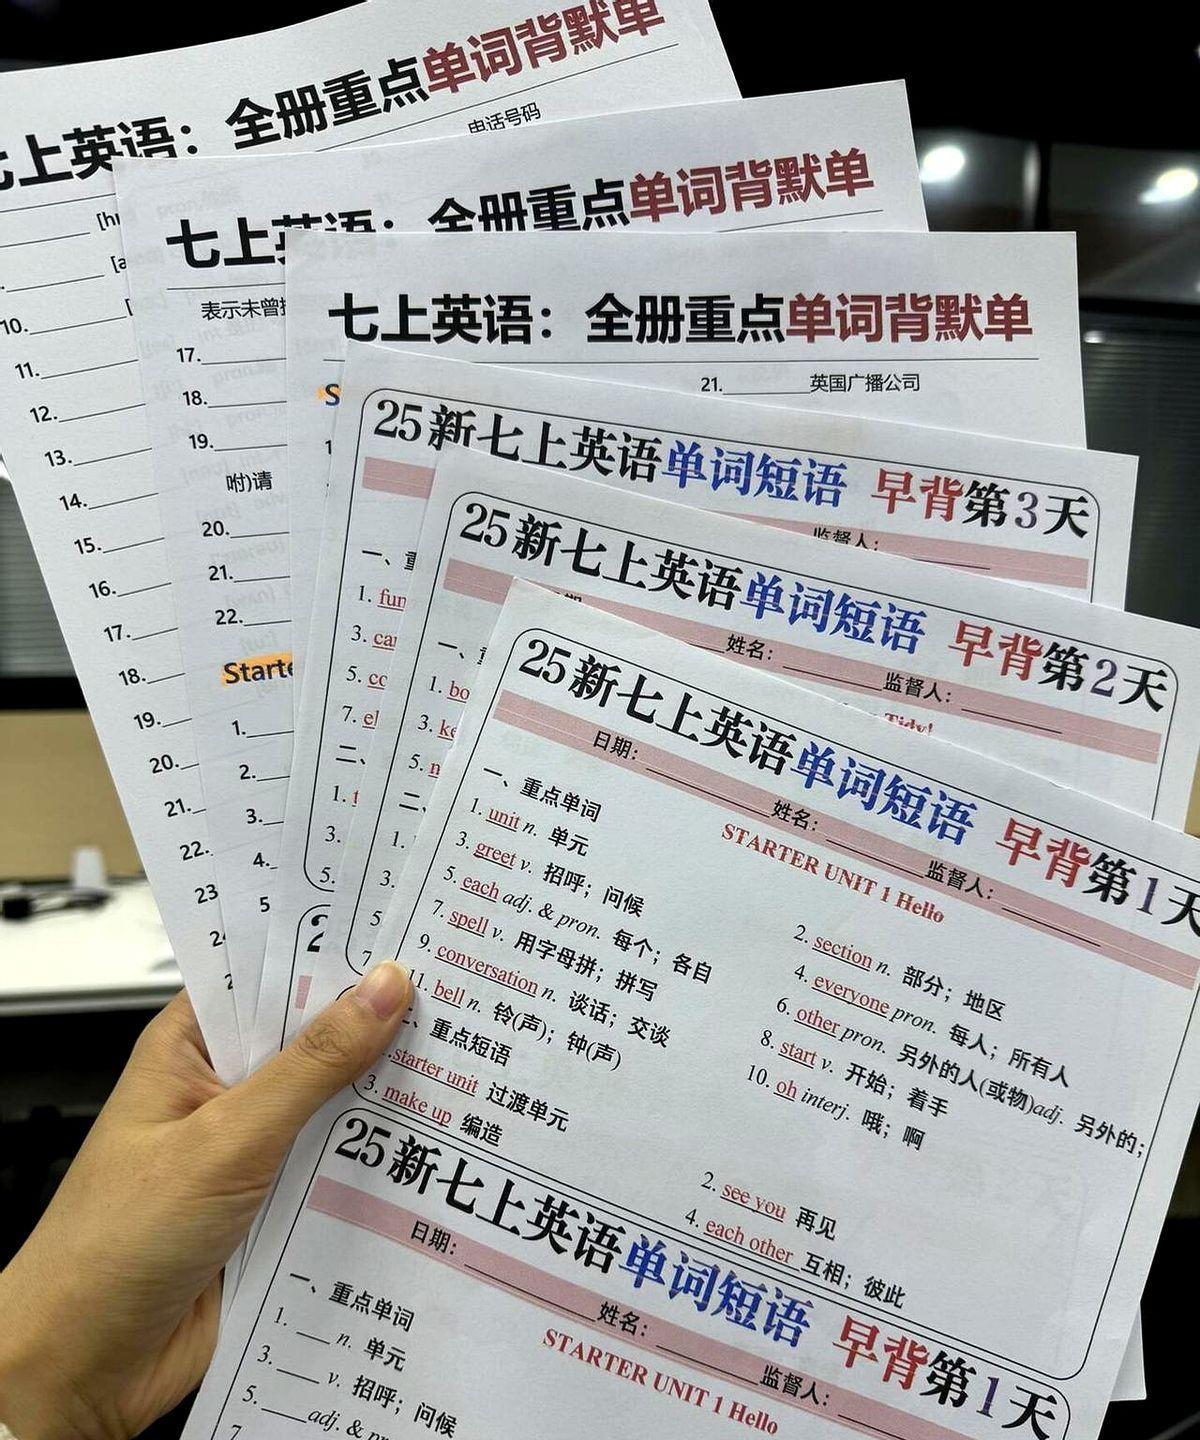 七上英语：全册重点单词背默单
电话号码
10.
11.
12.
13.
14.
15.
16.
17.
18.
19.
20.
21.
22.
23
七上英语：全册重点单词背默单
表示未曾
17.
18.
19.
咐)请
20.
21.
22.
Starte
1.
2.
3.
4.
5
七上英语：全册重点单词背默单
21.________英国广播公司
S
25新七上英语单词短语 早背第3天
监督人：
一、重
1. fun
3. car
5. co
7. el
二、
1. t
3.
5.
25新七上英语单词短语 早背第2天
姓名：________监督人：________
Tidy!
一、
1. bo
3. ke
5. n
二、
1.
3.
5
7.
25新七上英语单词短语 早背第1天
日期：________姓名：________监督人：________
STARTER UNIT 1 Hello
一、重点单词
1. unit n. 单元
2. section n. 部分；地区
3. greet v. 招呼；问候
4. everyone pron. 每人；所有人
5. each adj. & pron. 每个；各自
6. other pron. 另外的人(或物)adj. 另外的；
7. spell v. 用字母拼；拼写
8. start v. 开始；着手
9. conversation n. 谈话；交谈
10. oh interj. 哦；啊
11. bell n. 铃(声)；钟(声)
二、重点短语
starter unit 过渡单元
2. see you 再见
3. make up 编造
4. each other 互相；彼此
25新七上英语单词短语 早背第1天
日期：________姓名：________监督人：________
STARTER UNIT 1 Hello
一、重点单词
1. ____ n. 单元
3. ____ v. 招呼；问候
5. ____adj. & pr
7